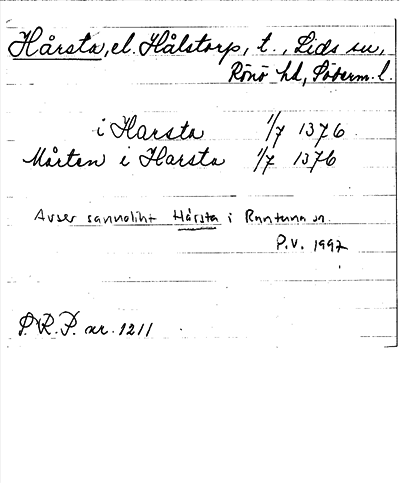 Hårsta, el. Hålstorp, t., Lids sn,
Rönö hd, Söderm. l.
i Harsta 1/7 1376
Mårten i Harsta 1/7 1376
Avser sannolikt Hårsta i Runtuna sn.
P.V. 1992
P.R.P. nr. 1211